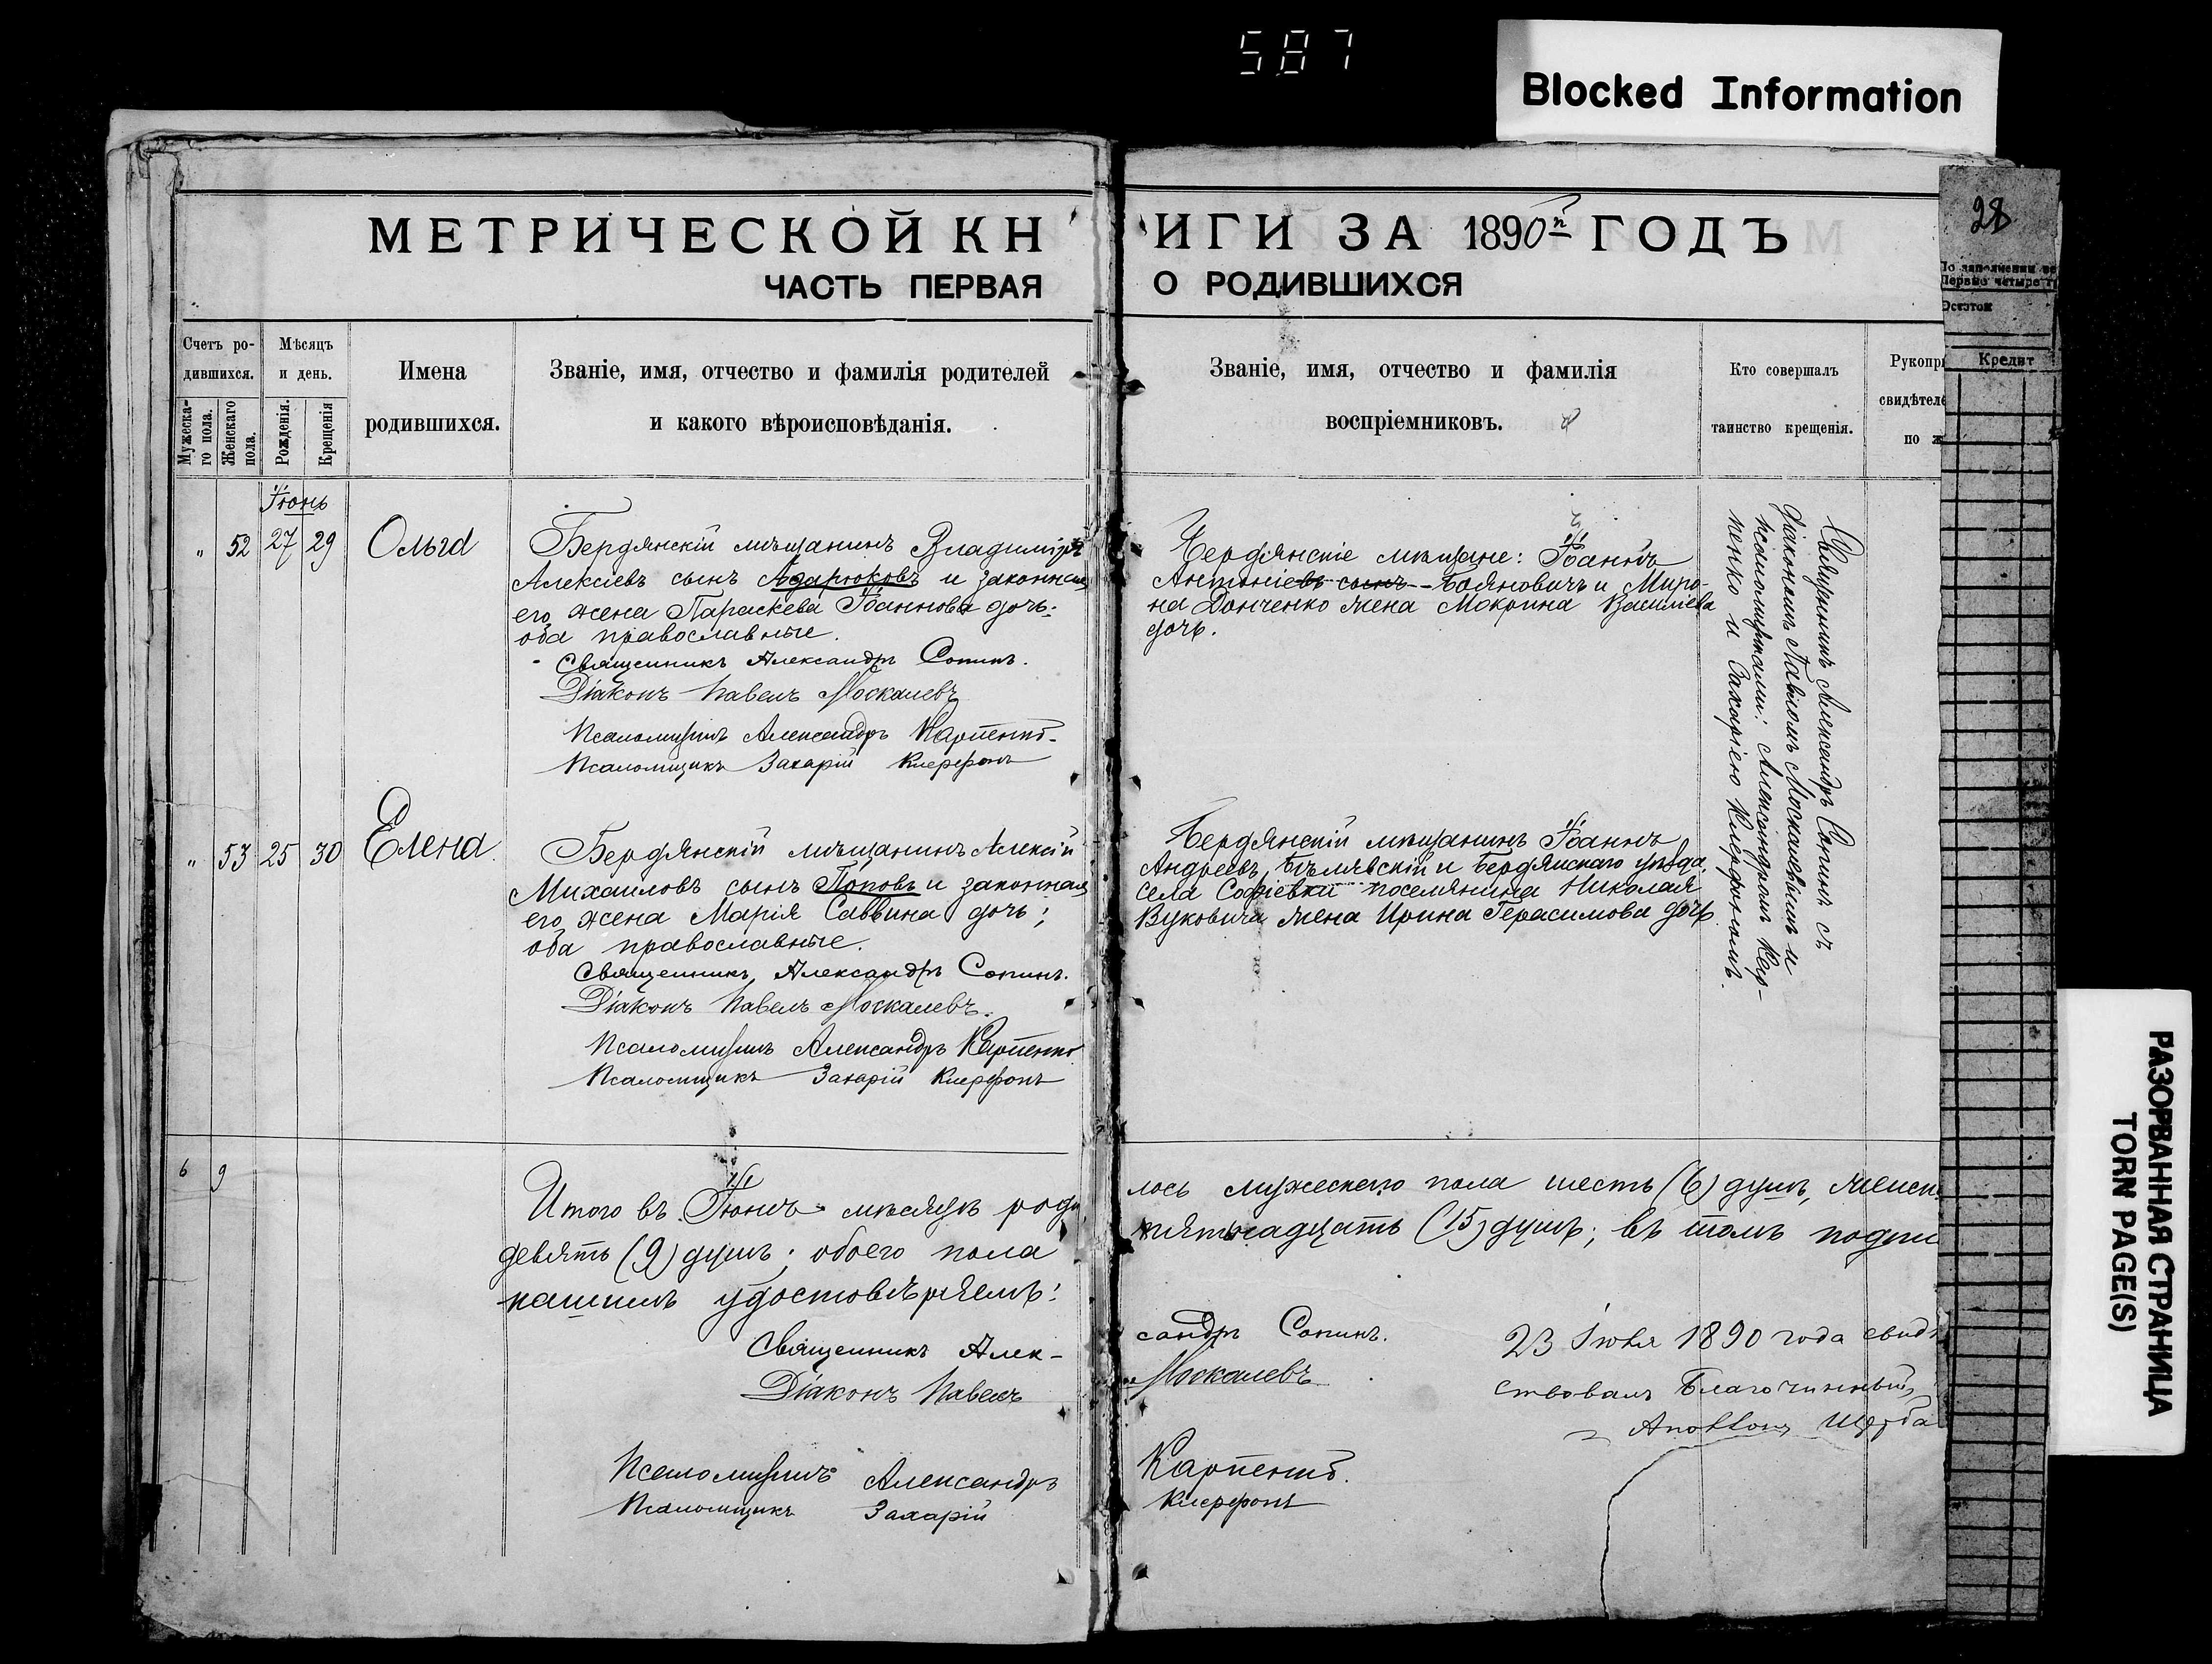 587
Blocked Information
МЕТРИЧЕСКОЙ КН
ИГИ ЗА 1890й ГОДЪ
ЧАСТЬ ПЕРВАЯ
О РОДИВШИХСЯ
28
Кредит
Счетъ ро-
дившихся.
Мѣсяцъ
и день.
Мужеска-
го пола.
Женскаго
пола.
Рожденія.
Крещенія
Имена
родившихся.
Званіе, имя, отчество и фамилія родителей
и какого вѣроисповѣданія.
Званіе, имя, отчество и фамилія
воспріемниковъ.
Кто совершалъ
таинство крещенія.
Рукопри
свидѣтеле
по ж
Іюнь
" 52 27 29 Ольга
Бердянскій мѣщанинъ Владиміръ
Алексіевъ сынъ Адарюковъ и законная
его жена Параскева Іоаннова дочь;
оба православные.
Священникъ Александръ Сопинъ.
Діаконъ Павелъ Москалевъ
Псаломщикъ Александръ Карпенко.
Псаломщикъ Захарій Клерфонъ
Бердянскіе мѣщане: Іоаннъ
Антоніевъ сынъ Бояновичъ и Миро-
на Донченко жена Мокрина Василіева
дочь.
Священникъ Александръ Сопинъ съ
діакономъ Павломъ Москалевымъ и
псаломщиками: Александромъ Кар-
пенко и Захаріею Клерфономъ.
" 53 25 30 Елена
Бердянскій мѣщанинъ Алексій
Михаиловъ сынъ Поповъ и законная
его жена Марія Саввина дочь;
оба православные.
Священникъ Александръ Сопинъ.
Діаконъ Павелъ Москалевъ.
Псаломщикъ Александръ Карпенко
Псаломщикъ Захарій Клерфонъ
Бердянскій мѣщанинъ Іоаннъ
Андреевъ Бѣлявскій и Бердянскаго уѣзда
села Софіевки поселянина Николая
Вуковича жена Ирина Герасимова дочь
6 9
Итого въ Іюнь мѣсяцѣ роди
лось мужескаго пола шесть (6) душъ, женск
девять (9) душъ; обоего пола
пятьнадцать (15) душъ; въ томъ подпи
нашимъ удостовѣряемъ:
Священникъ Алек-
сандръ Сопинъ.
Діаконъ Павелъ
Москалевъ
Псаломщикъ Александръ
Карпенко.
Псаломщикъ Захарій
Клерфонъ
23 Іюля 1890 года свидѣ
ствовалъ Благочинный,
Щерба
РАЗОРВАННАЯ СТРАНИЦА
TORN PAGE(S)